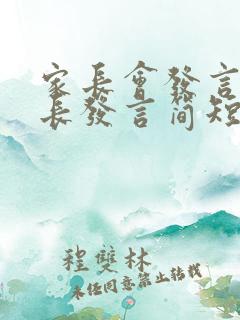 家长會發言
長發言简短
程雙林
未任同意禁止转载